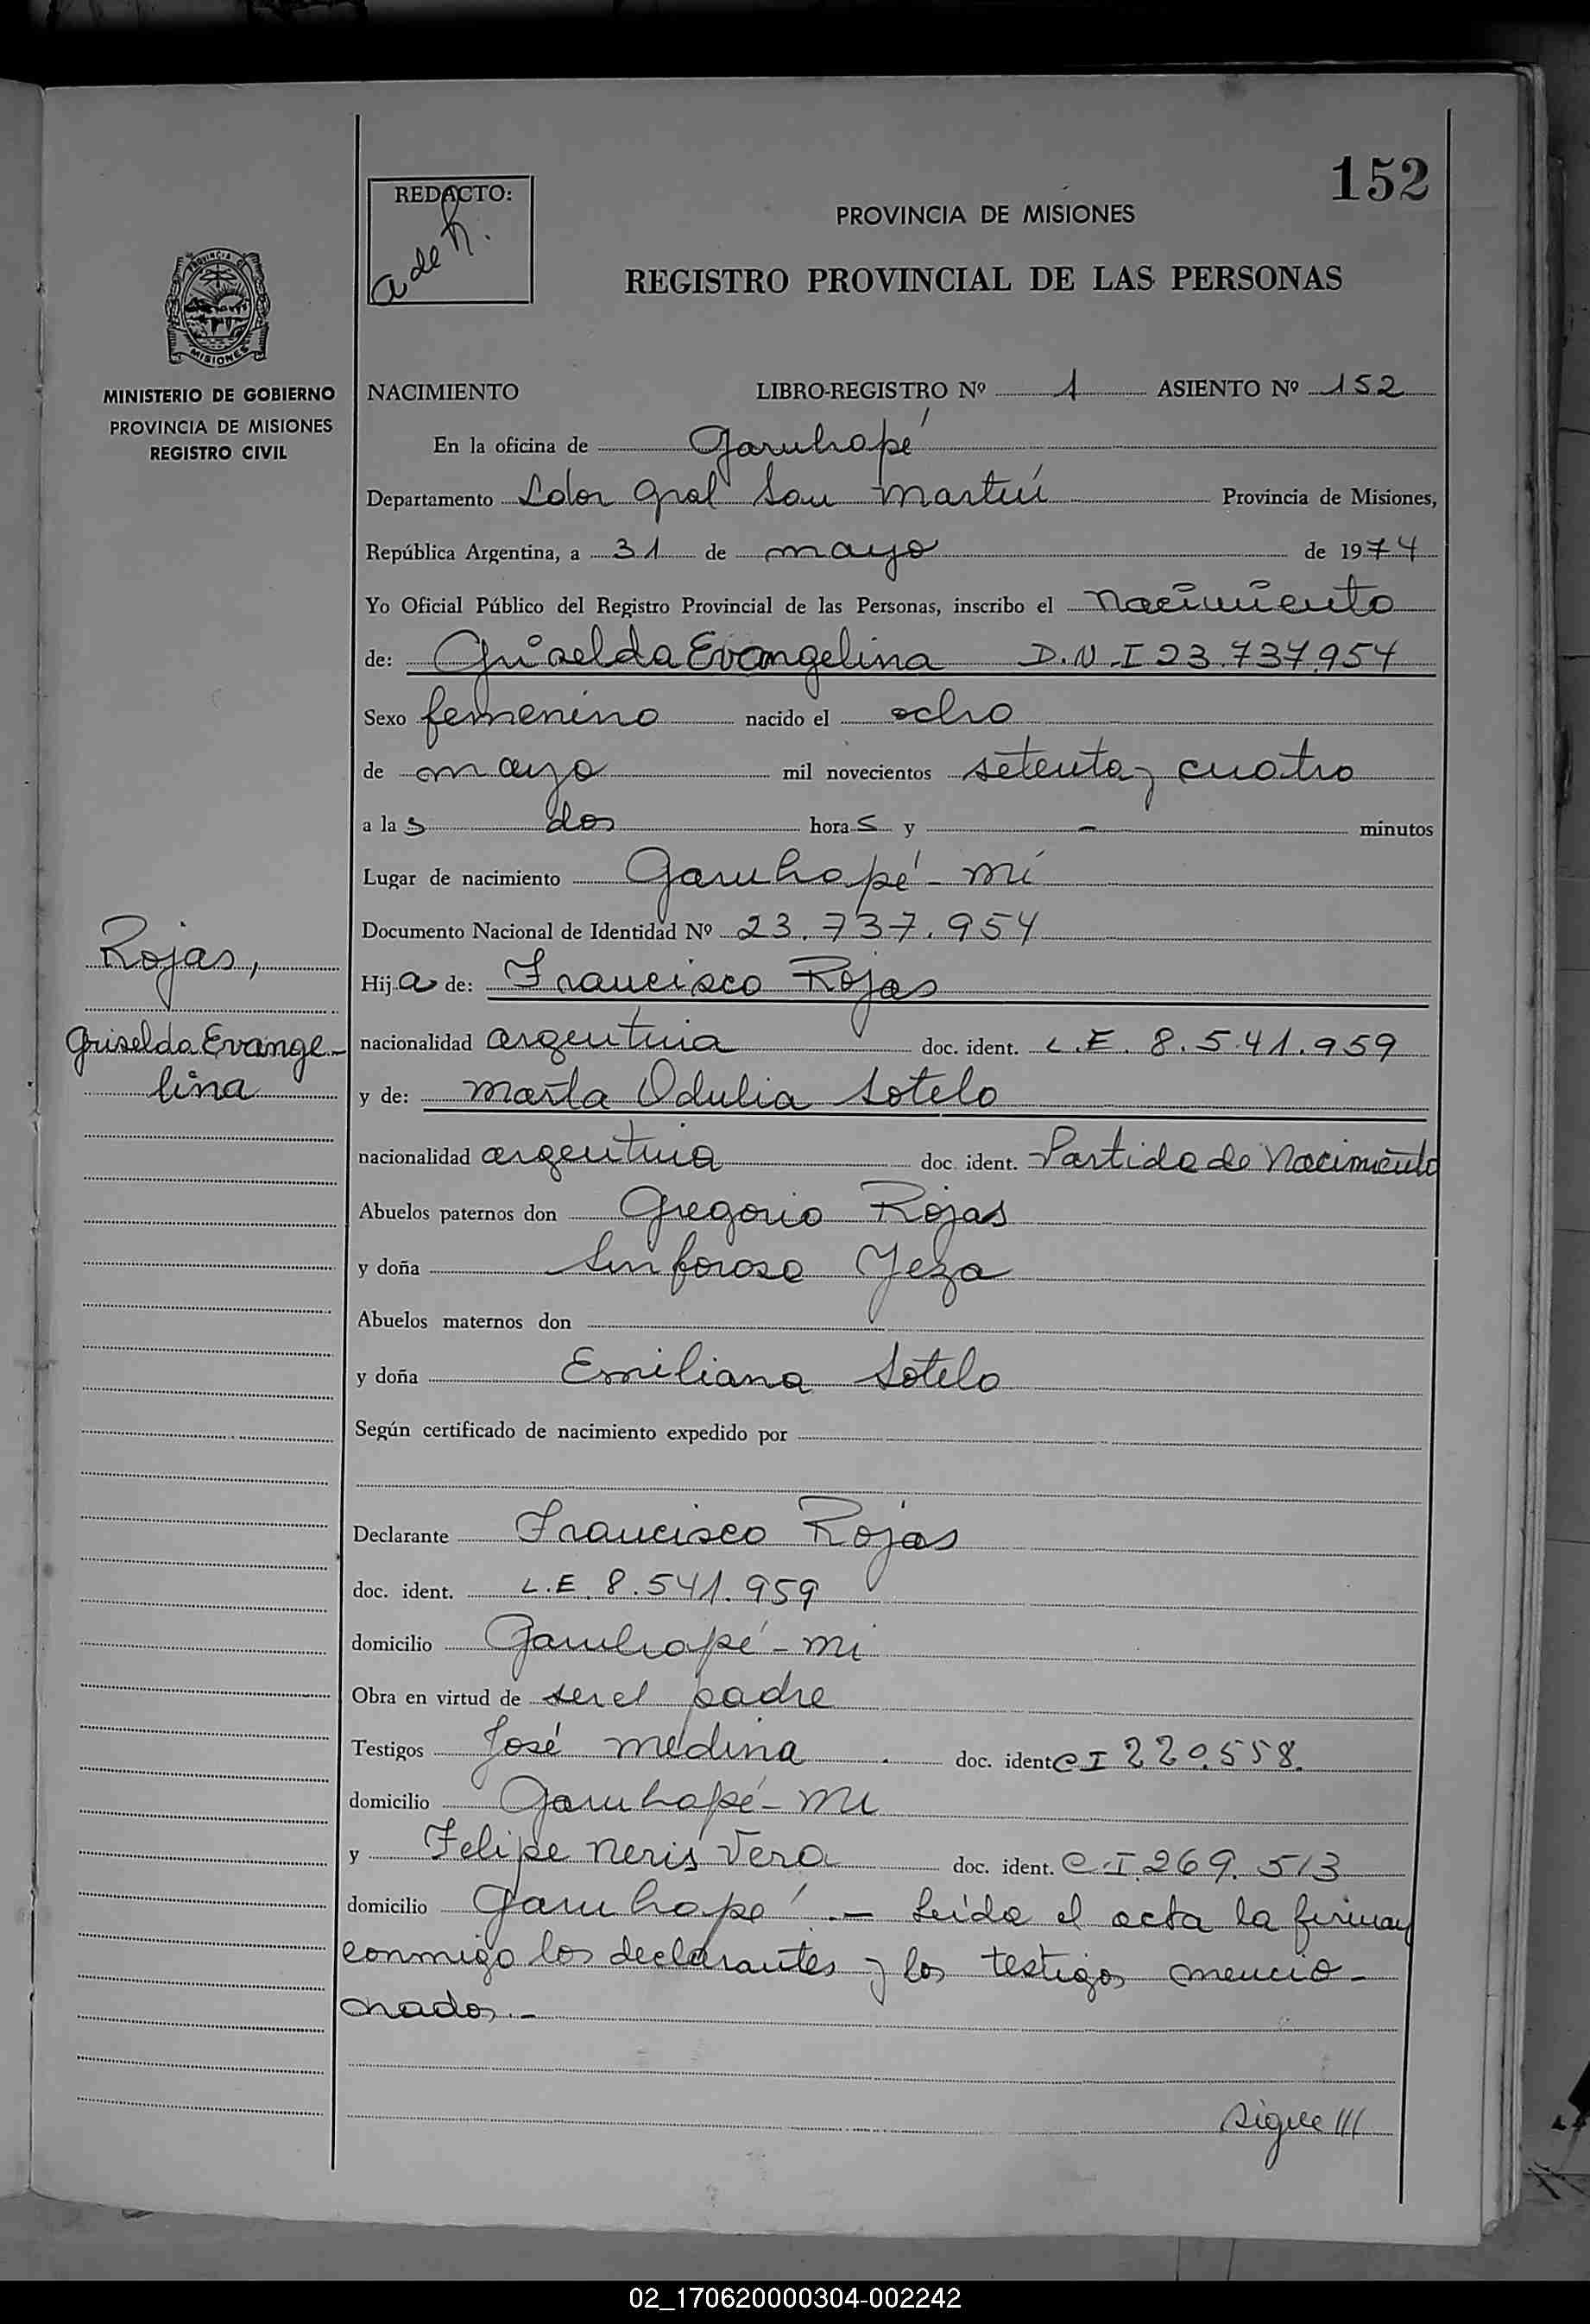 152
REDACTO:
a de h.
PROVINCIA DE MISIONES
REGISTRO PROVINCIAL DE LAS PERSONAS
PROVINCIA DE
MISIONES
MINISTERIO DE GOBIERNO
PROVINCIA DE MISIONES
REGISTRO CIVIL
NACIMIENTO LIBRO-REGISTRO Nº 1 ASIENTO Nº 152
En la oficina de Garuhapé
Departamento Ldor Gral San Martín Provincia de Misiones,
República Argentina, a 31 de mayo de 1974
Yo Oficial Público del Registro Provincial de las Personas, inscribo el nacimiento
de: Griselda Evangelina D.N.I 23.737.954
Sexo femenino nacido el ocho
de mayo mil novecientos setenta y cuatro
a las dos horas y - minutos
Lugar de nacimiento Garuhapé - mí
Documento Nacional de Identidad Nº 23.737.954
Hija de: Francisco Rojas
nacionalidad argentina doc. ident. L.E. 8.541.959
y de: Marta Odulia Sotelo
nacionalidad argentina doc. ident. Partida de Nacimiento
Abuelos paternos don Gregorio Rojas
y doña Sinforosa Yeza
Abuelos maternos don
y doña Emiliana Sotelo
Según certificado de nacimiento expedido por
Declarante Francisco Rojas
doc. ident. L.E. 8.541.959
domicilio Garuhapé - mi
Obra en virtud de ser el padre
Testigos José Medina doc. ident C I 220.558.
domicilio Garuhapé - Mi
y Felipe Neris Vera doc. ident. C.I. 269.513
domicilio Garuhapé .- Leída el acta la firman
conmigo los declarantes y los testigos mencio-
nados.-
sigue ///
Rojas,
Griselda Evange-
lina
02_170620000304-002242